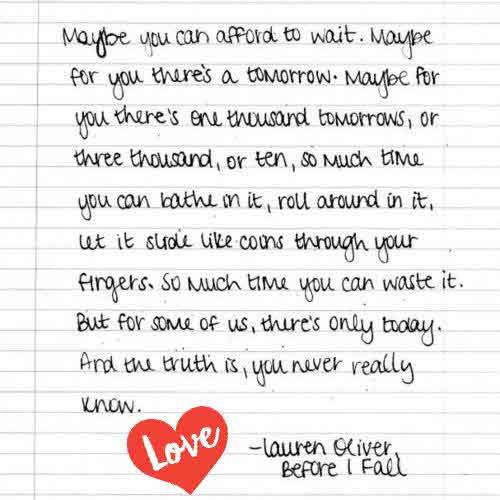 Maybe you can afford to wait. Maybe
for you there's a tomorrow. Maybe for
you there's one thousand tomorrows, or
three thousand, or ten, so much time
you can bathe in it, roll around in it,
let it slide like coins through your
fingers. So much time you can waste it.
But for some of us, there's only today.
And the truth is, you never really
know.
Love
-Lauren Oliver,
Before I Fall